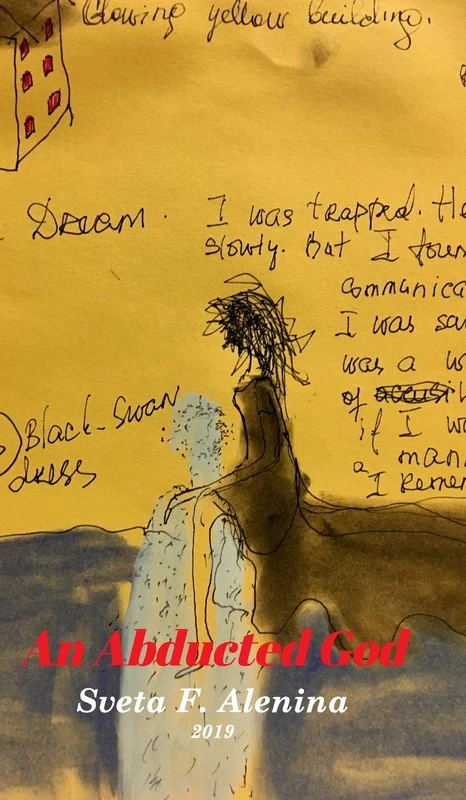 Glowing yellow building.
Dream. I was trapped. He
slowly. But I foun
communica
I was sav
was a w
of
if I wo
a mann
I Remem
Black-Swan
dress
An Abducted God
Sveta F. Alenina
2019